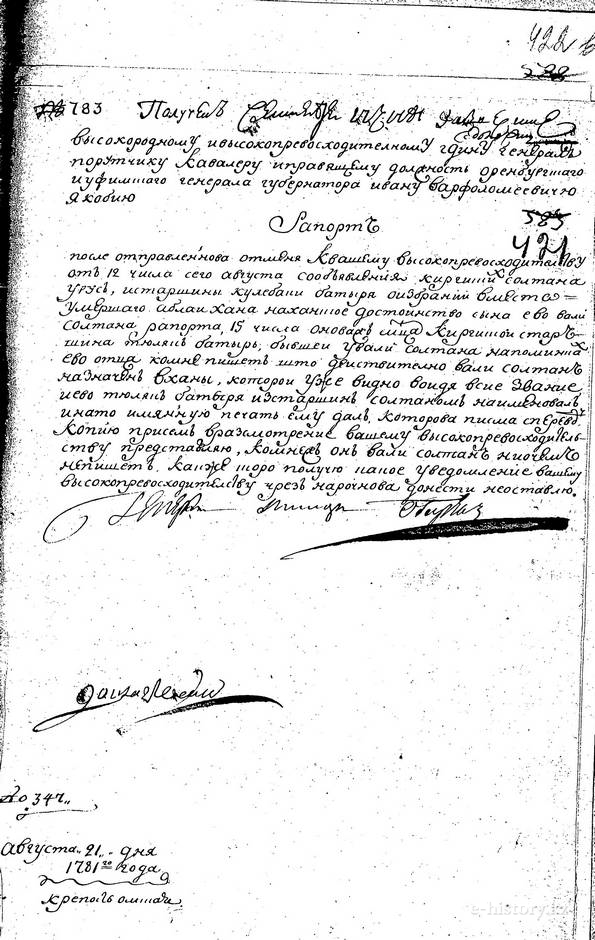 422
783 Полученъ
высокородному и высокопревосходителному гдину генералъ
порутчику кавалеру иправящему должность оренбургскаго
иуфимскаго генерала губернатора ивану варфоломеевичю
якобию
585
Рапортъ
421
после отправленнова отменя квашему высокопревосходителству
отъ 12 числа сего августа сообъявления киргиских солтана
старшины кулебаки батыря оизбрании вместа =
умершаго аблаихана наханное достоинство сына ево вали
солтана рапорта, 15 числа оновахъ мца киргиской стар =
шина тюляпъ батырь, бывшеи ували солтана
ево отца комне пишетъ што действително вали солтанъ
назначенъ вханы, которои уже видно воидя всие звание
иево тюляпъ батыря изстаршинъ солтаномъ наименовалъ
инато имянную печать ему далъ, которова писма сперевод
копию присемъ вразмотрение вашему высокопревосходитель =
ству представляю, комнежъ онъ вали солтанъ ниочемъ
непишетъ. какже скоро получю какое уведомление вашему
высокопревосходителству чрезъ нарочнова донести неоставлю.
№ 347
августа 21 дня
1781 го года
крепость омская
e-history.kz